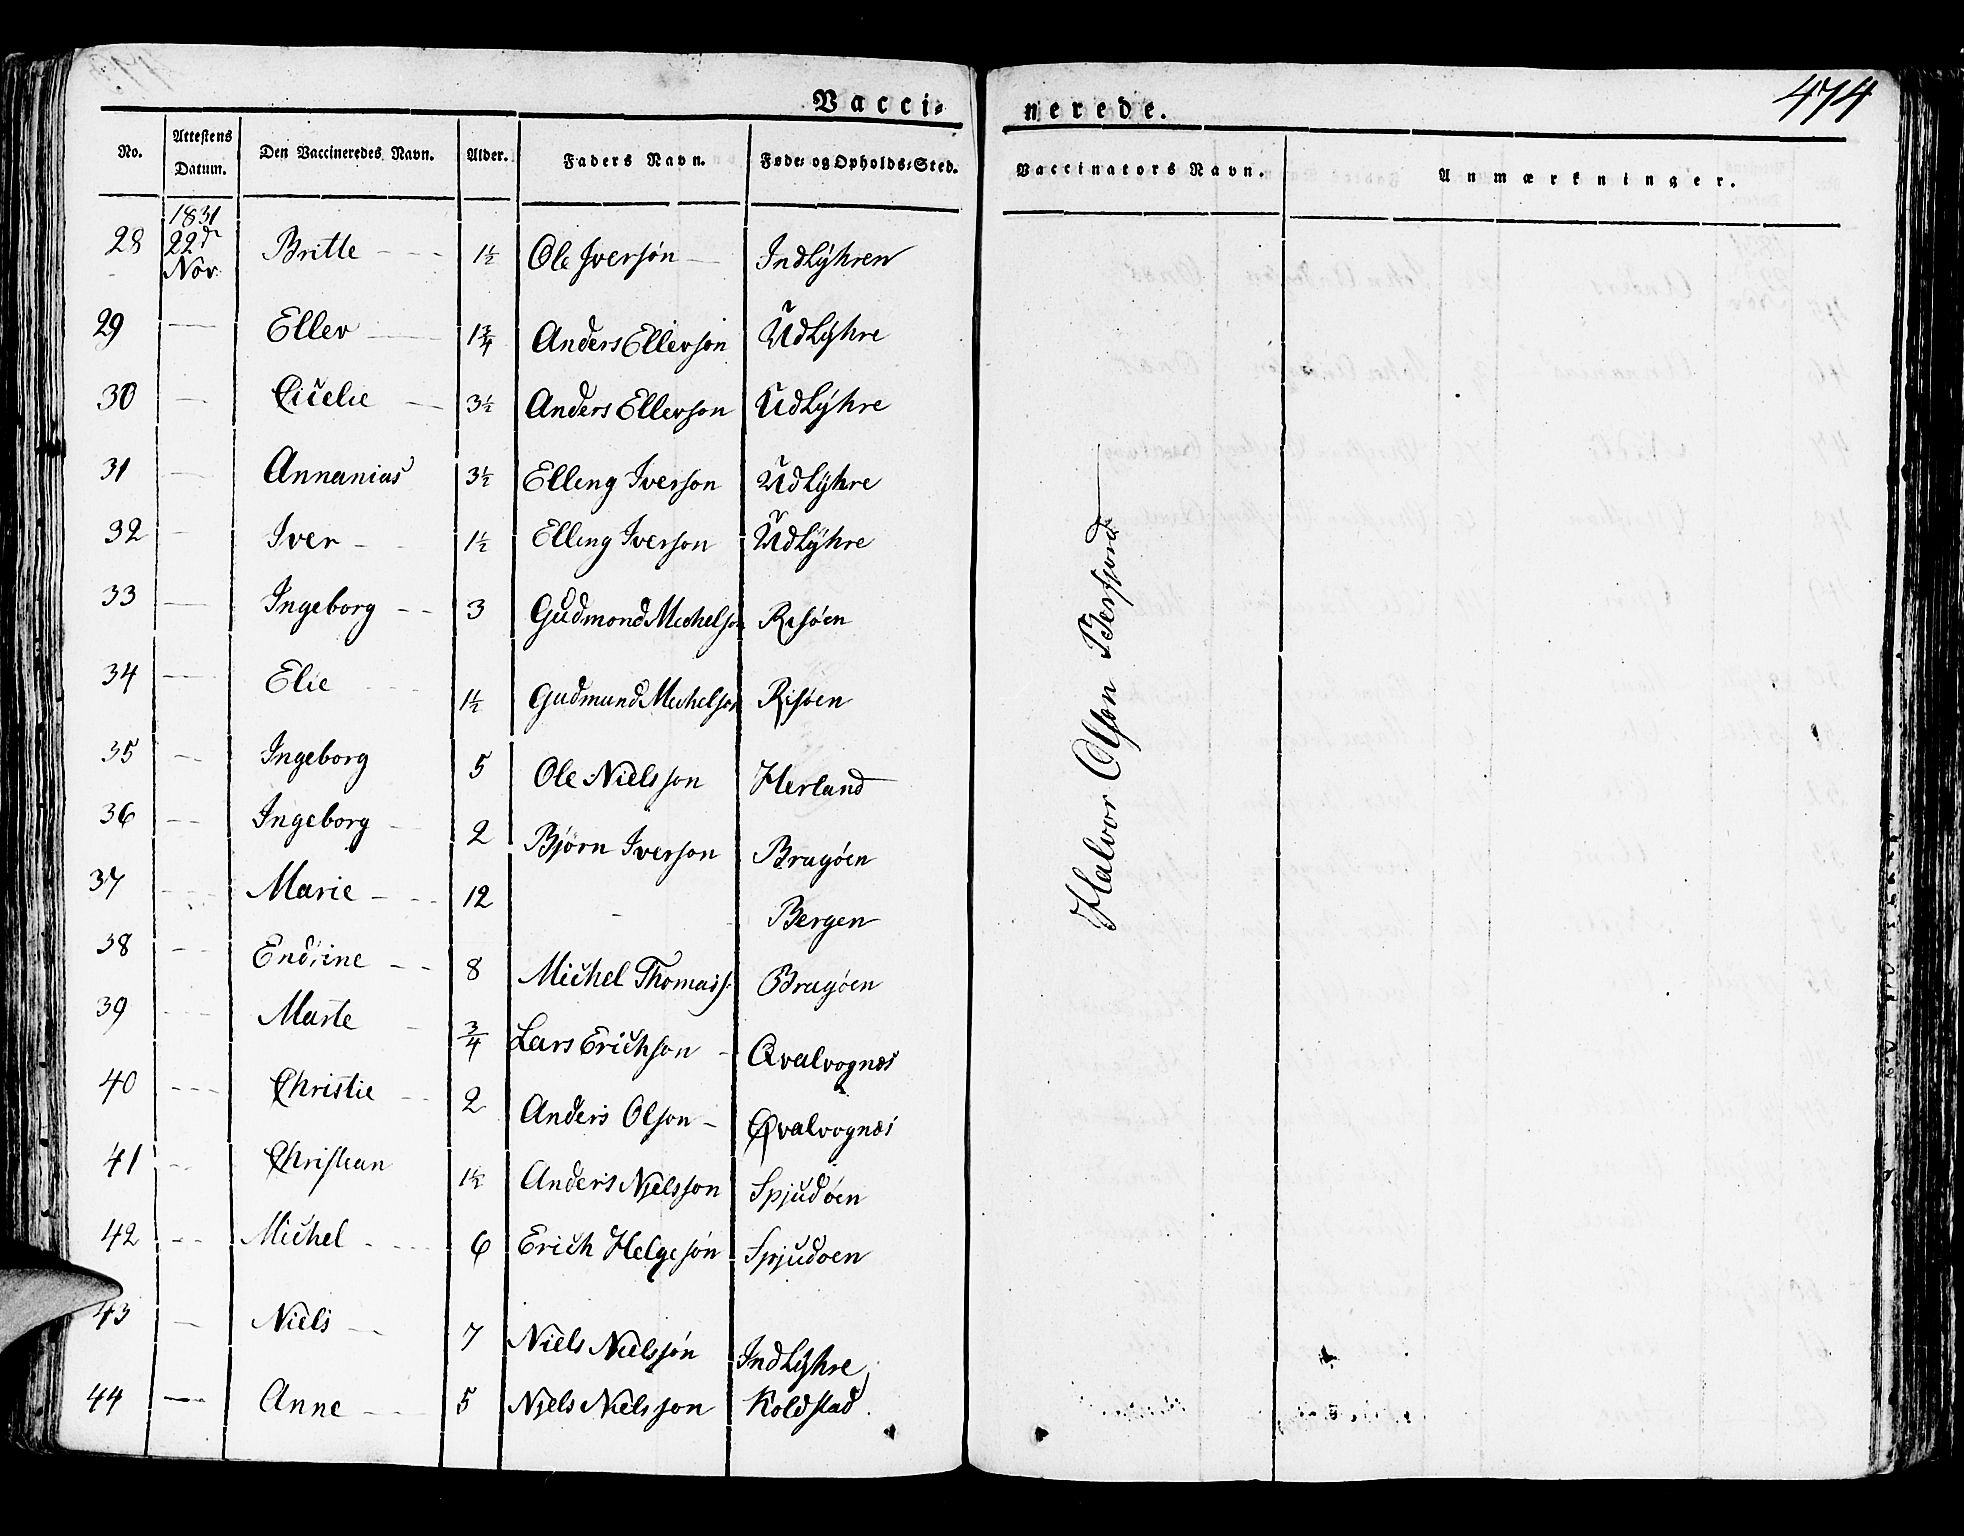 474
Vacci-nerede.
No. Attestens Datum. Den Vaccineredes Navn. Alder. Faders Navn. Føde- og Opholds-Sted. Vaccinators Navn. Anmærkninger.
28 1831 22de Nov. Britte - - - 1½ Ole Iversøn — Indlÿhren
29 — Ellev — 1¾ Anders Ellevson Üdlÿhre
30 — Cicelie — 3½ Anders Ellevson Üdlÿhre
31 — Annanias 3½ Elleng Iverson Üdlÿhre
32 — Iver - - 1½ Elleng Iverson Üdlÿhre
33 — Ingeborg - - 3 Gudmond Michelson Risøen
34 — Elie 1½ Gudmund Michelson Risøen
35 — Ingeborg 5 Ole Nielsson Herland
36 - - Ingeborg - 2 Bjørn Iverson Bragøen
37 - - Marie - - - 12 - - Bergen
38 - - Endrine - - 8 Michel Thomass. Bragøen
39 - - Marte - ¾ Lars Erichson - Qvalvognæs
40 - - - Christie - - 2 Anders Olson - Qvalvognæs
41 - - Christian 1½ Anders Nielsson Spjudøen
42 - - Michel - - - 6 Erich Helgesøn Spjudoen
43 — Niels - - 7 Niels Nielsøn Indlÿhre
44 — Anne - - - 5 Niels Nielsson Koldstad
Halvor Olson Berfjord